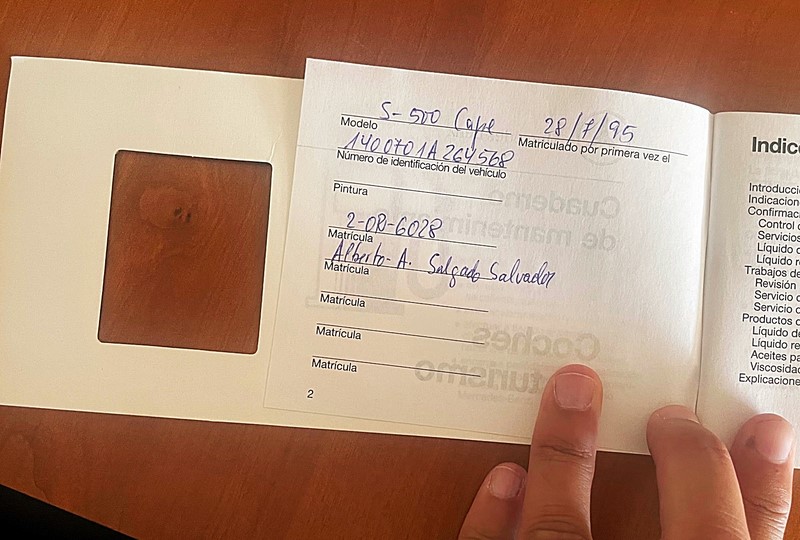 S-500 Cape
Modelo
28/7/95
Matriculado por primera vez el
1400701A264568
Número de identificación del vehículo
Pintura
Matrícula
Alberto-A. Salgado Salvador
Matrícula
Matrícula
Matrícula
Matrícula
2
Cuaderno
de mantenimiento
Coches
turismo
Indice
Introducci
Indicacion
Confirmac
Control d
Servicios
Líquido d
Líquido re
Trabajos de
Revisión
Servicio d
Servicio d
Productos d
Líquido de
Líquido re
Aceites pa
Viscosidad
Explicacione